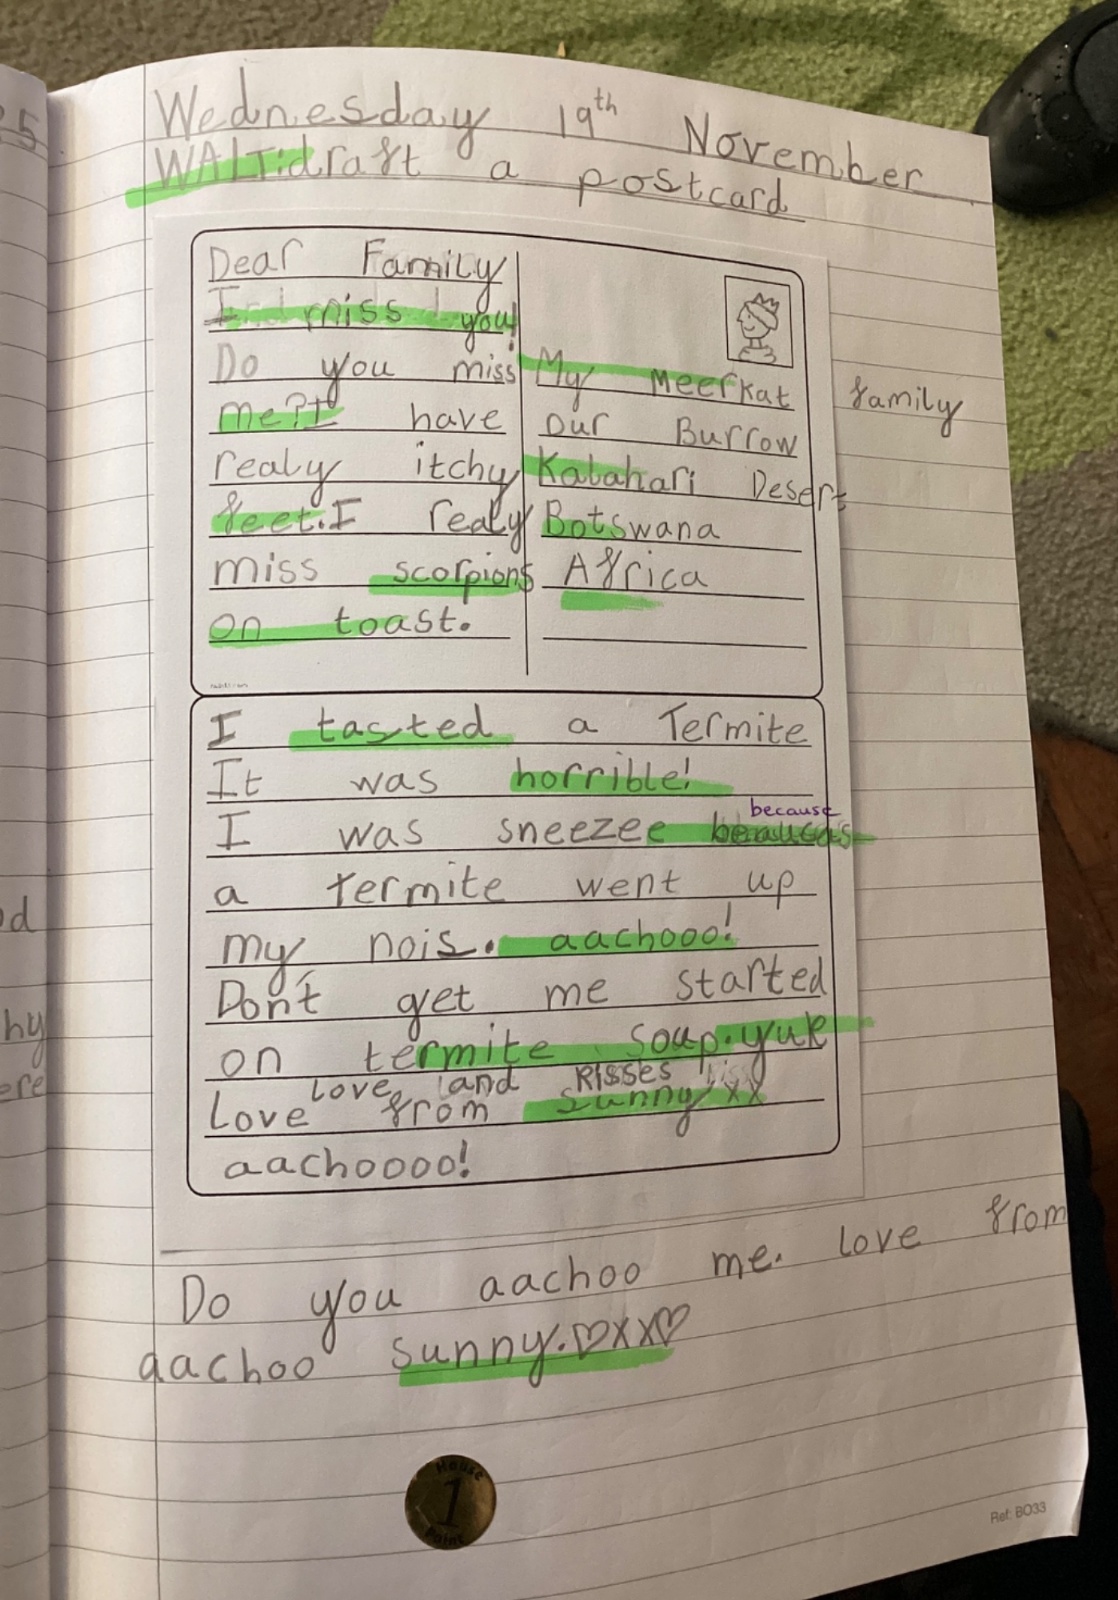 Wednesday 19th November
WALT:draft a postcard
Dear Family
I miss you!
Do you miss
me? I have
realy itchy
feet. I realy
miss scorpions
on toast.
My Meerkat family
our Burrow
Kalahari Desert
Botswana
Africa
I tasted a Termite
It was horrible!
because
I was sneezee
a termite went up
my nois. aachooo!
Don't get me started
on termite soup. yuk
love and kisses
Love from sunny xx
aachoooo!
Do you aachoo me. love from
aachoo sunny.♡xx♡
House
1
Point
Ref: BO33
5
od
hy
ere